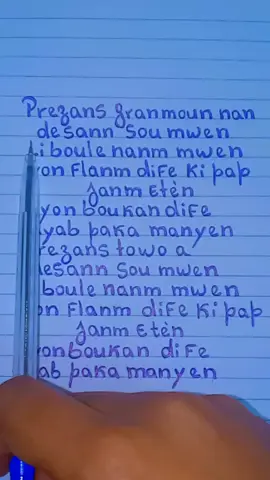 Prezans granmoun nan
desann sou mwen
i boule nanm mwen
on Flanm diFe Ki pap
Janm Etèn
yon boukan diFe
yab paka manyen
rezans towo a
desann sou mwen
boule nanm mwen
on Flanm diFe Ki pap
Janm Etèn
onboukan diFe
ab paka manyen